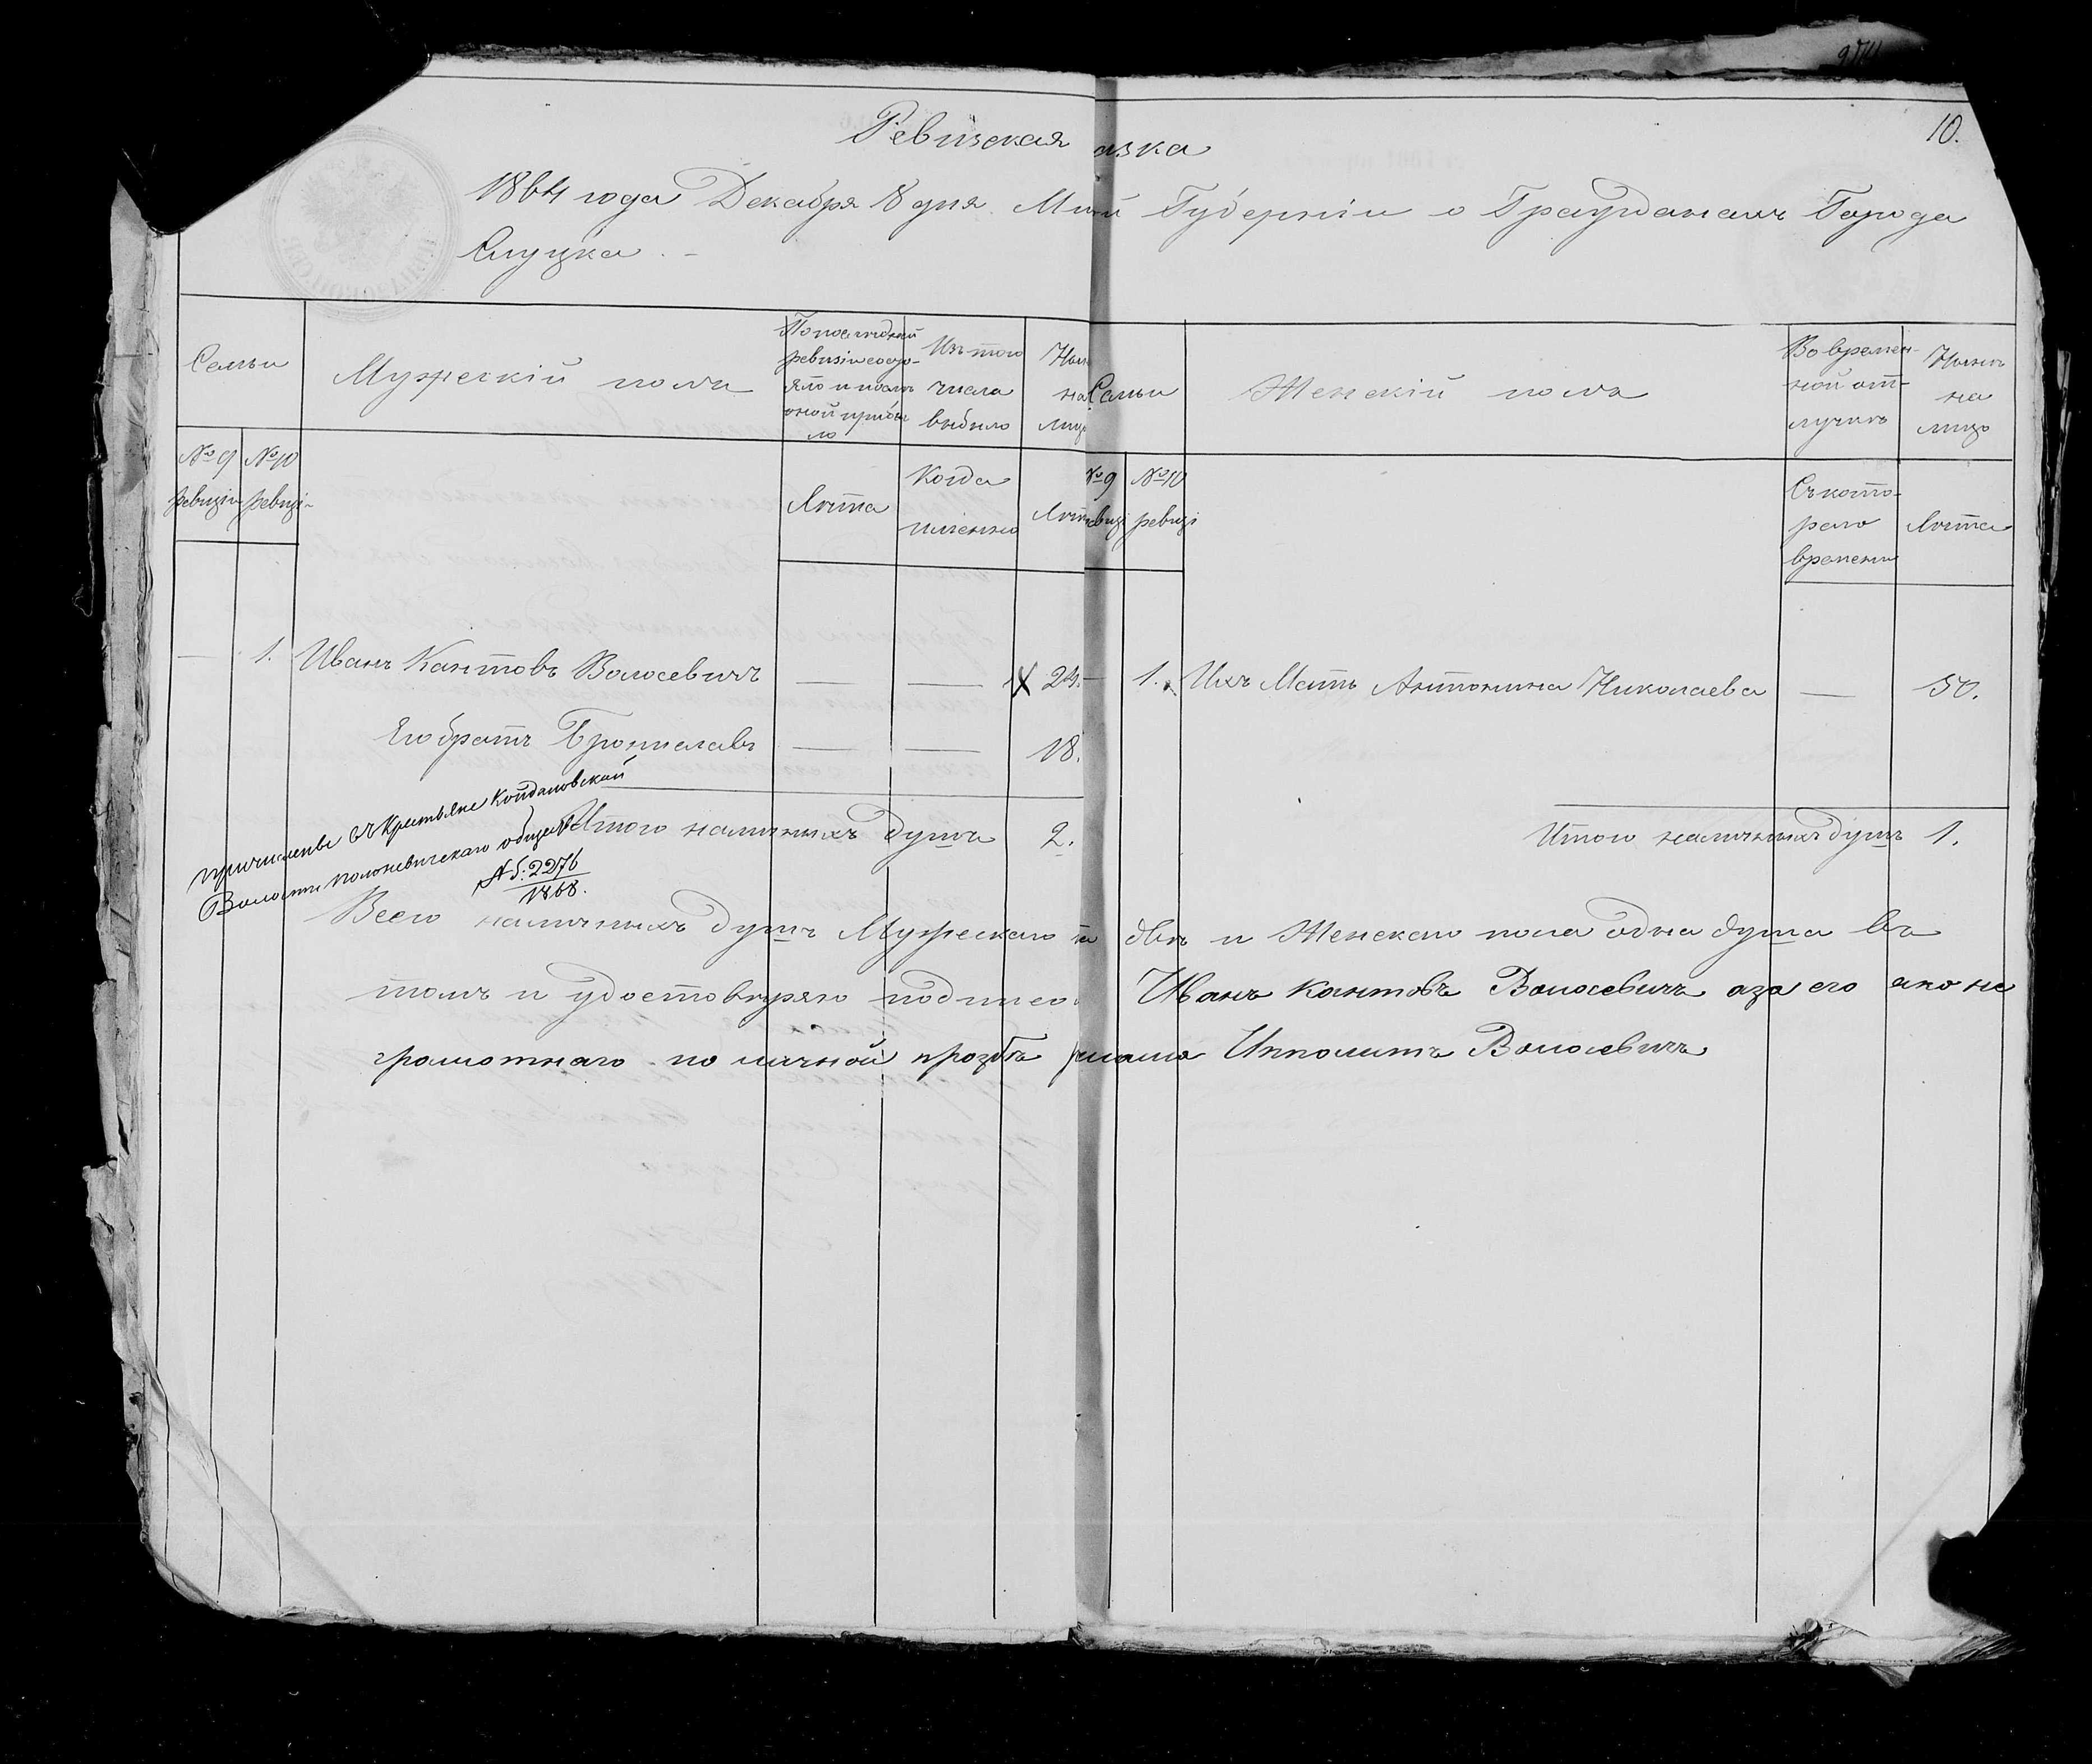 10.
Ревизская азка
1864 года Декабря 18 дня Мин й Губерніи о Гражданахъ Города
Слуцка. -
Семьи
Мужескій полъ
По последней ревизіи состояло и после оной прибыло
Изъ того числа выбыло
На лицо
Семьи
Женскій полъ
Во временной отлучкѣ
Нынѣ на лицо
№ 9 ревизіи
№ 10 ревизі
Лѣта
Когда имянно
Лѣт
№ 9 евизі
№ 10 ревизі
Съ котораго времени
Лѣта
— 1. Иванъ Кантовъ Волосевичъ — — 24. — 1. Ихъ Мать Антонина Николаева — 50.
Его братъ Брониславъ — — 18.
причислены въ Крестьяне Койдановской
Волости полоневичскаго общества
№ 2276
1868.
Итого наличныхъ душъ 2.
Итого наличныхъ душъ 1.
Всего наличныхъ душъ Мужескаго по двѣ и Женскаго пола одна душа въ
томъ и удостовѣряю подписо Иванъ Кантовъ Волосевичъ аза его яко не
грамотнаго по личной прозбѣ Ипполитъ Волосевичъ